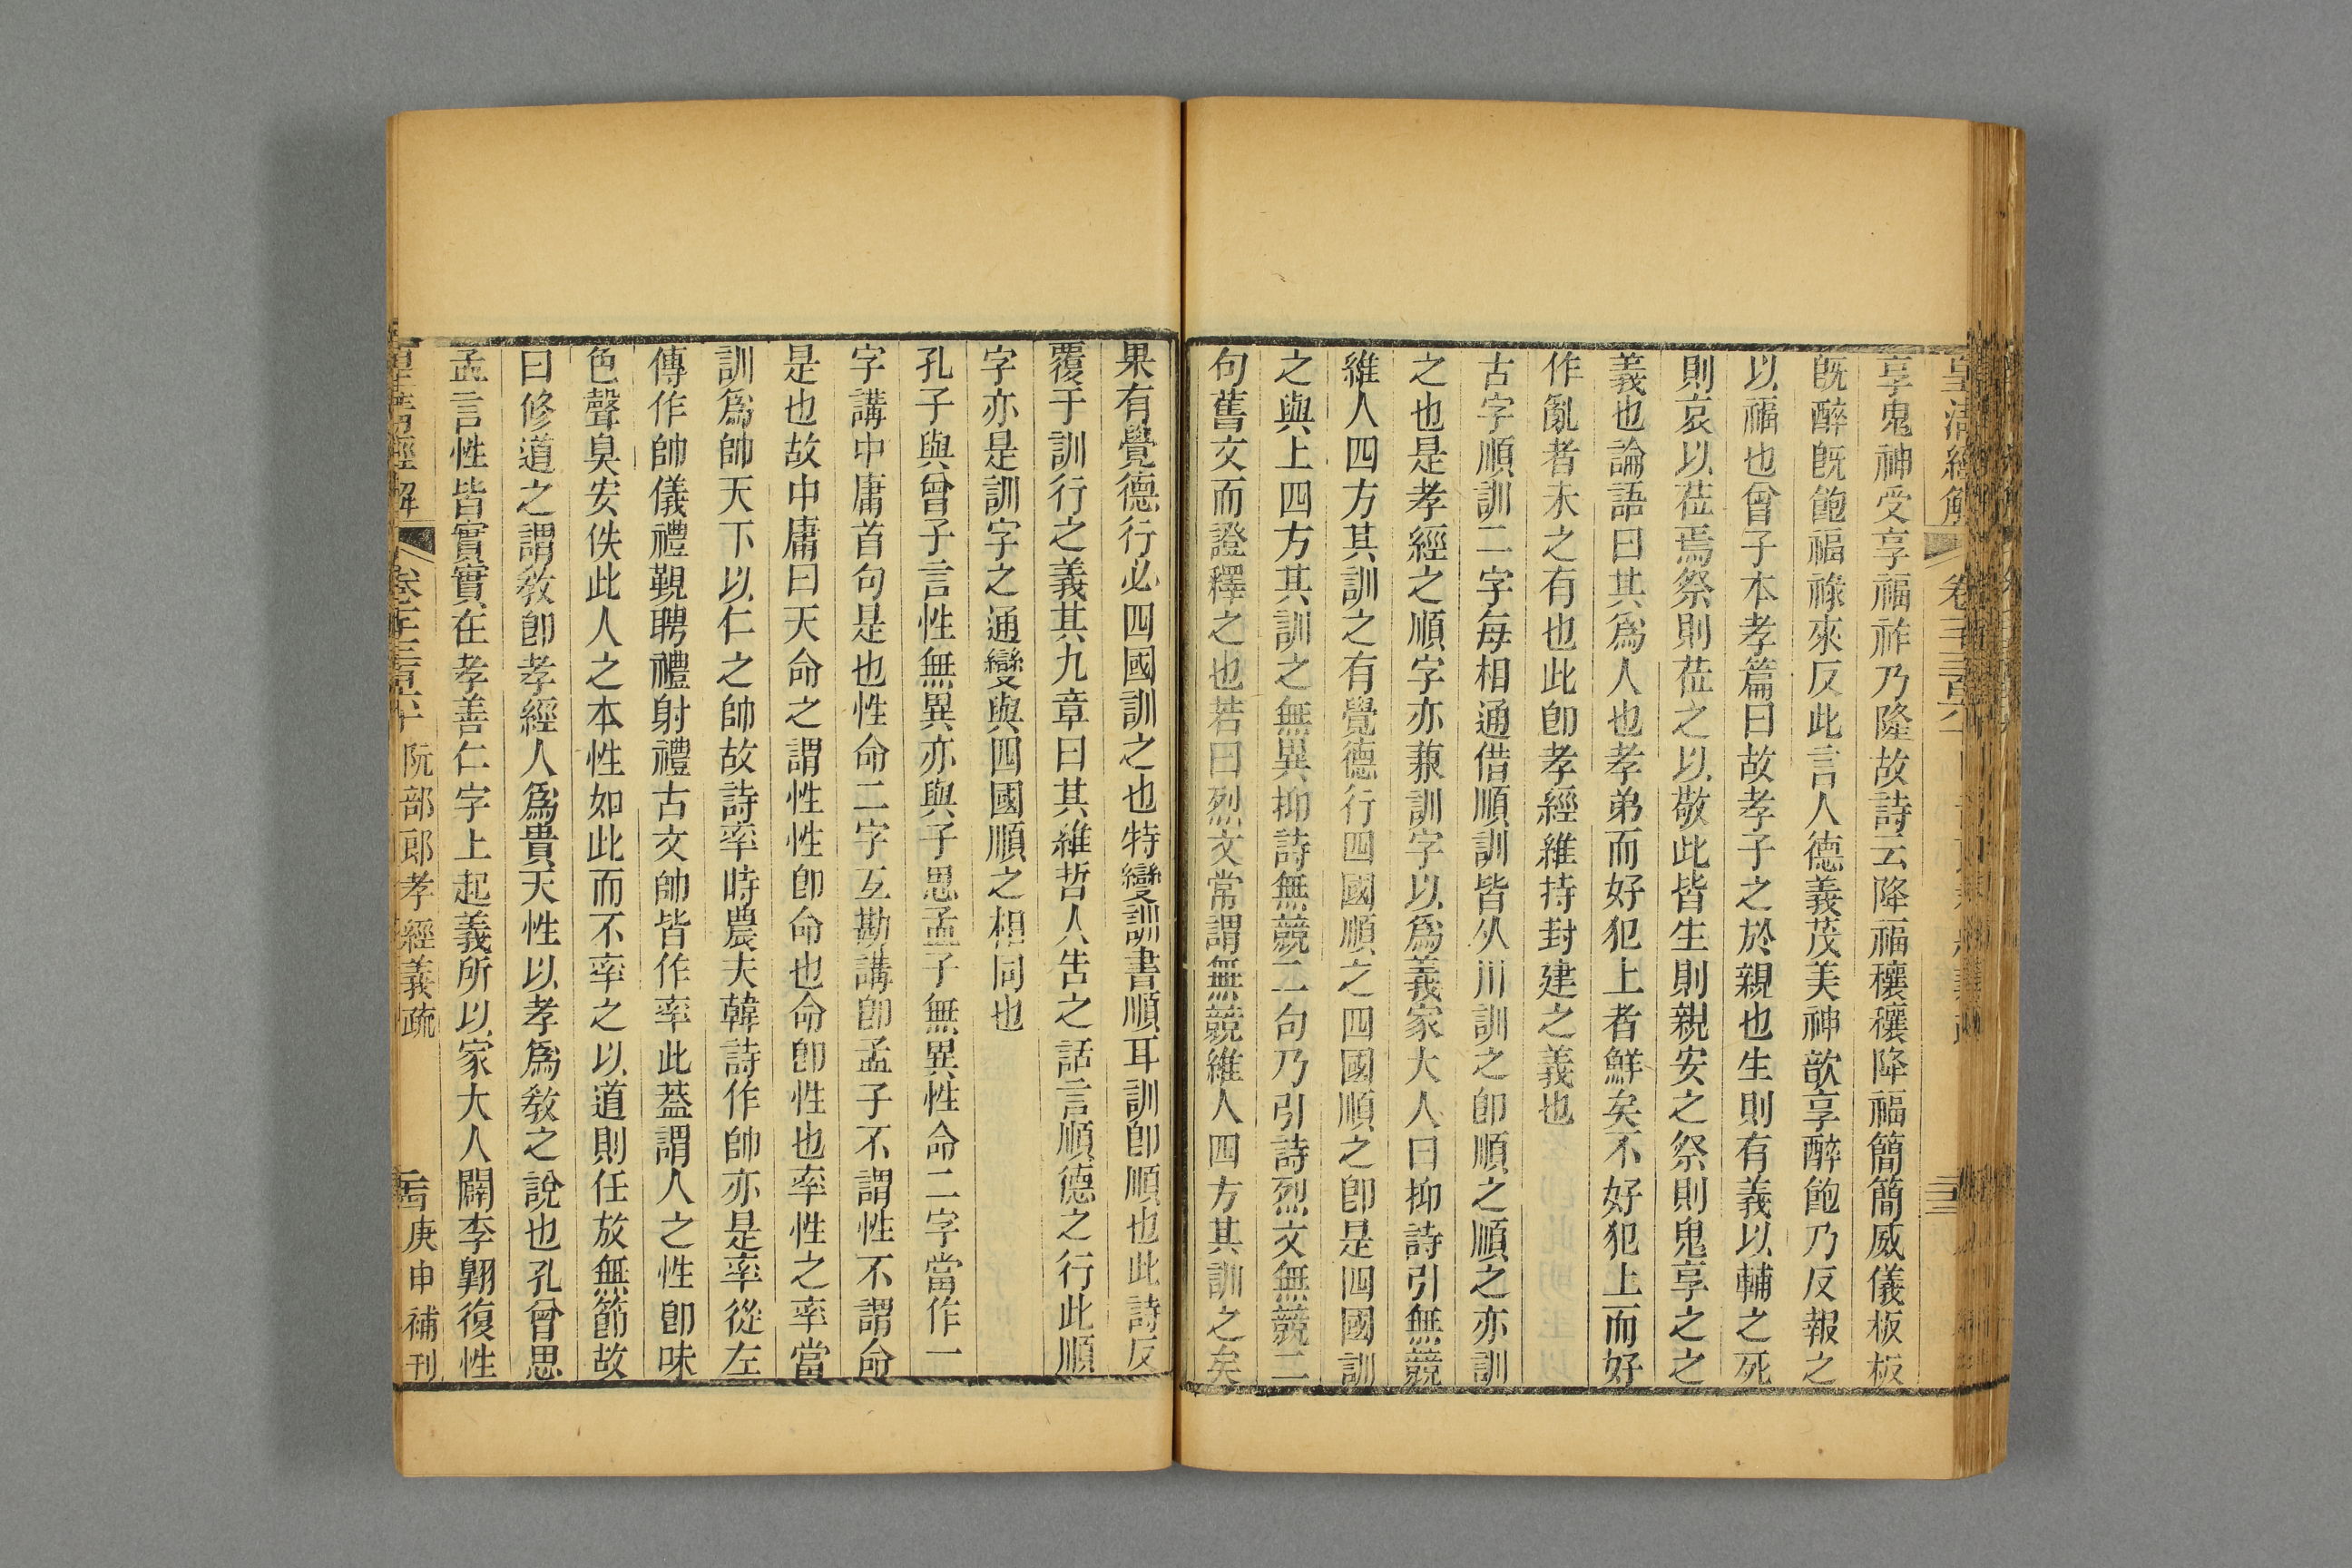 享鬼神受享福祚乃隆故詩云降福穰穰降福簡簡威儀板板
旣醉旣飽福祿來反此言人德義茂美神歆享醉飽乃反報之
以福也曾子本孝篇曰故孝子之於親也生則有義以輔之死
則哀以莅焉祭則莅之以敬此皆生則親安之祭則鬼享之之
義也論語曰其爲人也孝弟而好犯上者鮮矣不好犯上而好
作亂者未之有也此卽孝經維持封建之義也
古字順訓二字每相通借順訓皆从川訓之卽順之順之亦訓
之也是孝經之順字亦兼訓字以爲義家大人曰抑詩引無競
維人四方其訓之有覺德行四國順之四國順之卽是四國訓
之與上四方其訓之無異抑詩無競二句乃引詩烈文無競二
句舊文而證釋之也若曰烈文常謂無競維人四方其訓之矣
果有覺德行必四國訓之也特變訓書順耳訓卽順也此詩反
覆于訓行之義其九章曰其維哲人告之話言順德之行此順
字亦是訓字之通變與四國順之相同也
孔子與曾子言性無異亦與子思孟子無異性命二字當作一
字講中庸首句是也性命二字互勘講卽孟子不謂性不謂命
是也故中庸曰天命之謂性性卽命也命卽性也率性之率當
訓爲帥天下以仁之帥故詩率時農夫韓詩作帥亦是率從左
傳作帥儀禮覲聘禮射禮古文帥皆作率此蓋謂人之性卽味
色聲臭安佚此人之本性如此而不率之以道則任放無節故
曰修道之謂敎卽孝經人爲貴天性以孝爲敎之說也孔曾思
孟言性皆實實在孝善仁字上起義所以家大人闢李翺復性
皇清經解 卷千三百六十 阮部郎孝經義疏 庚申補刊